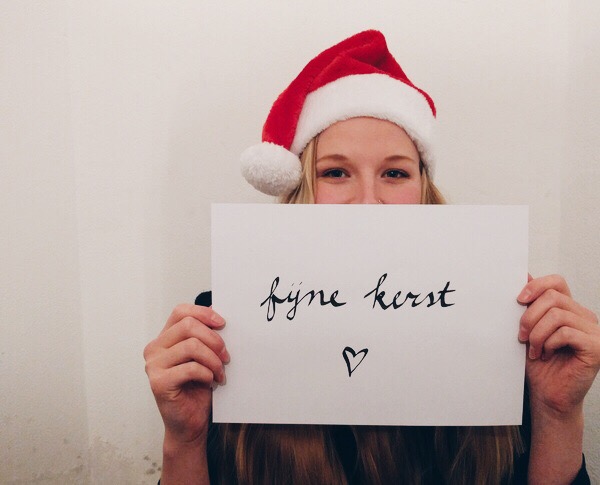 fijne kerst